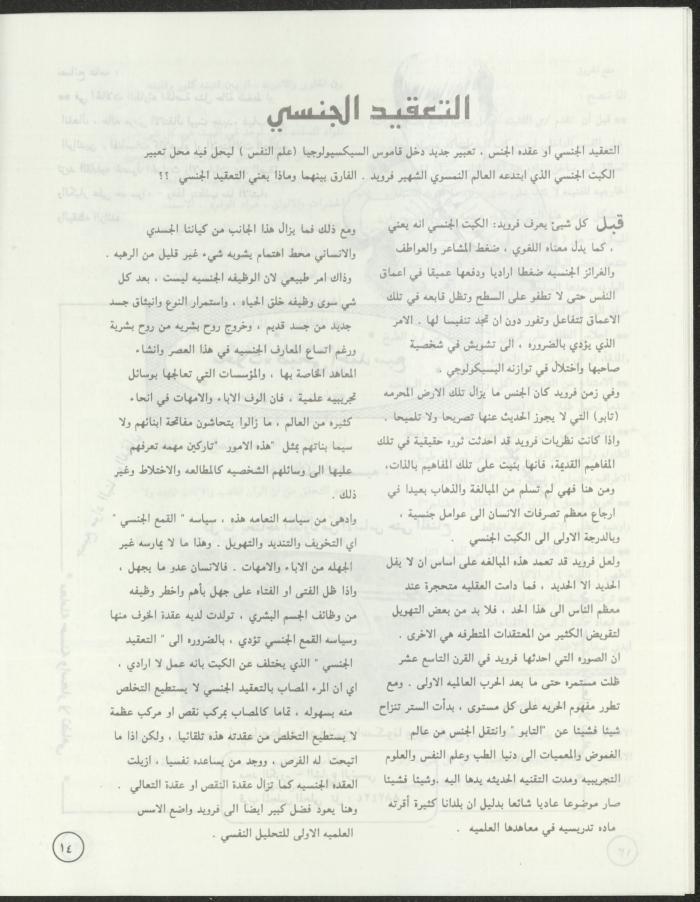 التعقيد الجنسي
التعقيد الجنسي او عقده الجنس ، تعبير جديد دخل قاموس السيكسيولوجيا (علم النفس ) ليحل فيه محل تعبير
الكبت الجنسي الذي ابتدعه العالم النمسوي الشهير فرويد . الفارق بينهما وماذا يعني التعقيد الجنسي ؟؟
قبل كل شيئ يعرف فرويد: الكبت الجنسي انه يعني
، كما يدل معناه اللغوي ، ضغط المشاعر والعواطف
والغرائز الجنسيه ضغطا اراديا ودفعها عميقا في اعماق
النفس حتى لا تطفو على السطح وتظل قابعه في تلك
الاعماق تتفاعل وتفور دون ان تجد تنفيسا لها . الامر
الذي يؤدي بالضروره ، الى تشويش في شخصية
صاحبها واختلال في توازنه البسيكولوجي .
وفي زمن فرويد كان الجنس ما يزال تلك الارض المحرمه
(تابو) التي لا يجوز الحديث عنها تصريحا ولا تلميحا .
واذا كانت نظريات فرويد قد احدثت ثوره حقيقية في تلك
المفاهيم القديمة، فانها بنيت على تلك المفاهيم بالذات،
ومن هنا فهي لم تسلم من المبالغة والذهاب بعيدا في
ارجاع معظم تصرفات الانسان الى عوامل جنسية ،
وبالدرجة الاولى الى الكبت الجنسي .
ولعل فرويد قد تعمد هذه المبالغه على اساس ان لا يفل
الحديد الا الحديد ، فما دامت العقليه متحجرة عند
معظم الناس الى هذا الحد ، فلا بد من بعض التهويل
لتقويض الكثير من المعتقدات المتطرفه هي الاخرى .
ان الصوره التي احدثها فرويد في القرن التاسع عشر
ظلت مستمره حتى ما بعد الحرب العالميه الاولى . ومع
تطور مفهوم الحريه على كل مستوى ، بدأت الستر تنزاح
شيئا فشيئا عن "التابو " وانتقل الجنس من عالم
الغموض والمعميات الى دنيا الطب وعلم النفس والعلوم
التجريبيه ومدت التقنيه الحديثه يدها اليه .وشيئا فشيئا
صار موضوعا عاديا شائعا بدليل ان بلدانا كثيرة أقرته
ماده تدريسيه في معاهدها العلميه .
ومع ذلك فما يزال هذا الجانب من كياننا الجسدي
والانساني محط اهتمام يشوبه شيء غير قليل من الرهبه .
وذاك امر طبيعي لان الوظيفه الجنسيه ليست ، بعد كل
شي سوى وظيفه خلق الحياه ، واستمرار النوع وانبثاق جسد
جديد من جسد قديم ، وخروج روح بشريه من روح بشرية
ورغم اتساع المعارف الجنسيه في هذا العصر وانشاء
المعاهد الخاصة بها ، والمؤسسات التي تعالجها بوسائل
تجريبيه علمية ، فان الوف الاباء والامهات في انحاء
كثيره من العالم ، ما زالوا يتحاشون مفاتحة ابنائهم ولا
سيما بناتهم بمثل "هذه الامور "تاركين مهمه تعرفهم
عليها الى وسائلهم الشخصيه كالمطالعه والاختلاط وغير
ذلك .
وادهى من سياسه النعامه هذه ، سياسه " القمع الجنسي "
اي التخريف والتنديد والتهويل . وهذا ما لا يمارسه غير
الجهله من الاباء والامهات . فالانسان عدو ما يجهل ،
واذا ظل الفتى او الفتاه على جهل بأهم واخطر وظيفه
من وظائف الجسم البشري ، تولدت لديه عقدة الخوف منها
وسياسه القمع الجنسي تؤدي ، بالضروره الى " التعقيد
الجنسي " الذي يختلف عن الكبت بانه عمل لا ارادي ،
اي ان المرء المصاب بالتعقيد الجنسي لا يستطيع التخلص
منه بسهوله ، تماما كالمصاب بمركب نقص او مركب عظمة
لا يستطيع التخلص من عقدته هذه تلقائيا ، ولكن اذا ما
اتيحت له الفرص ، ووجد من يساعده نفسيا ، ازيلت
العقده الجنسيه كما تزال عقدة النقص او عقدة التعالي .
وهنا يعود فضل كبير ايضا الى فرويد واضع الاسس
العلميه الاولى للتحليل النفسي .
١٤